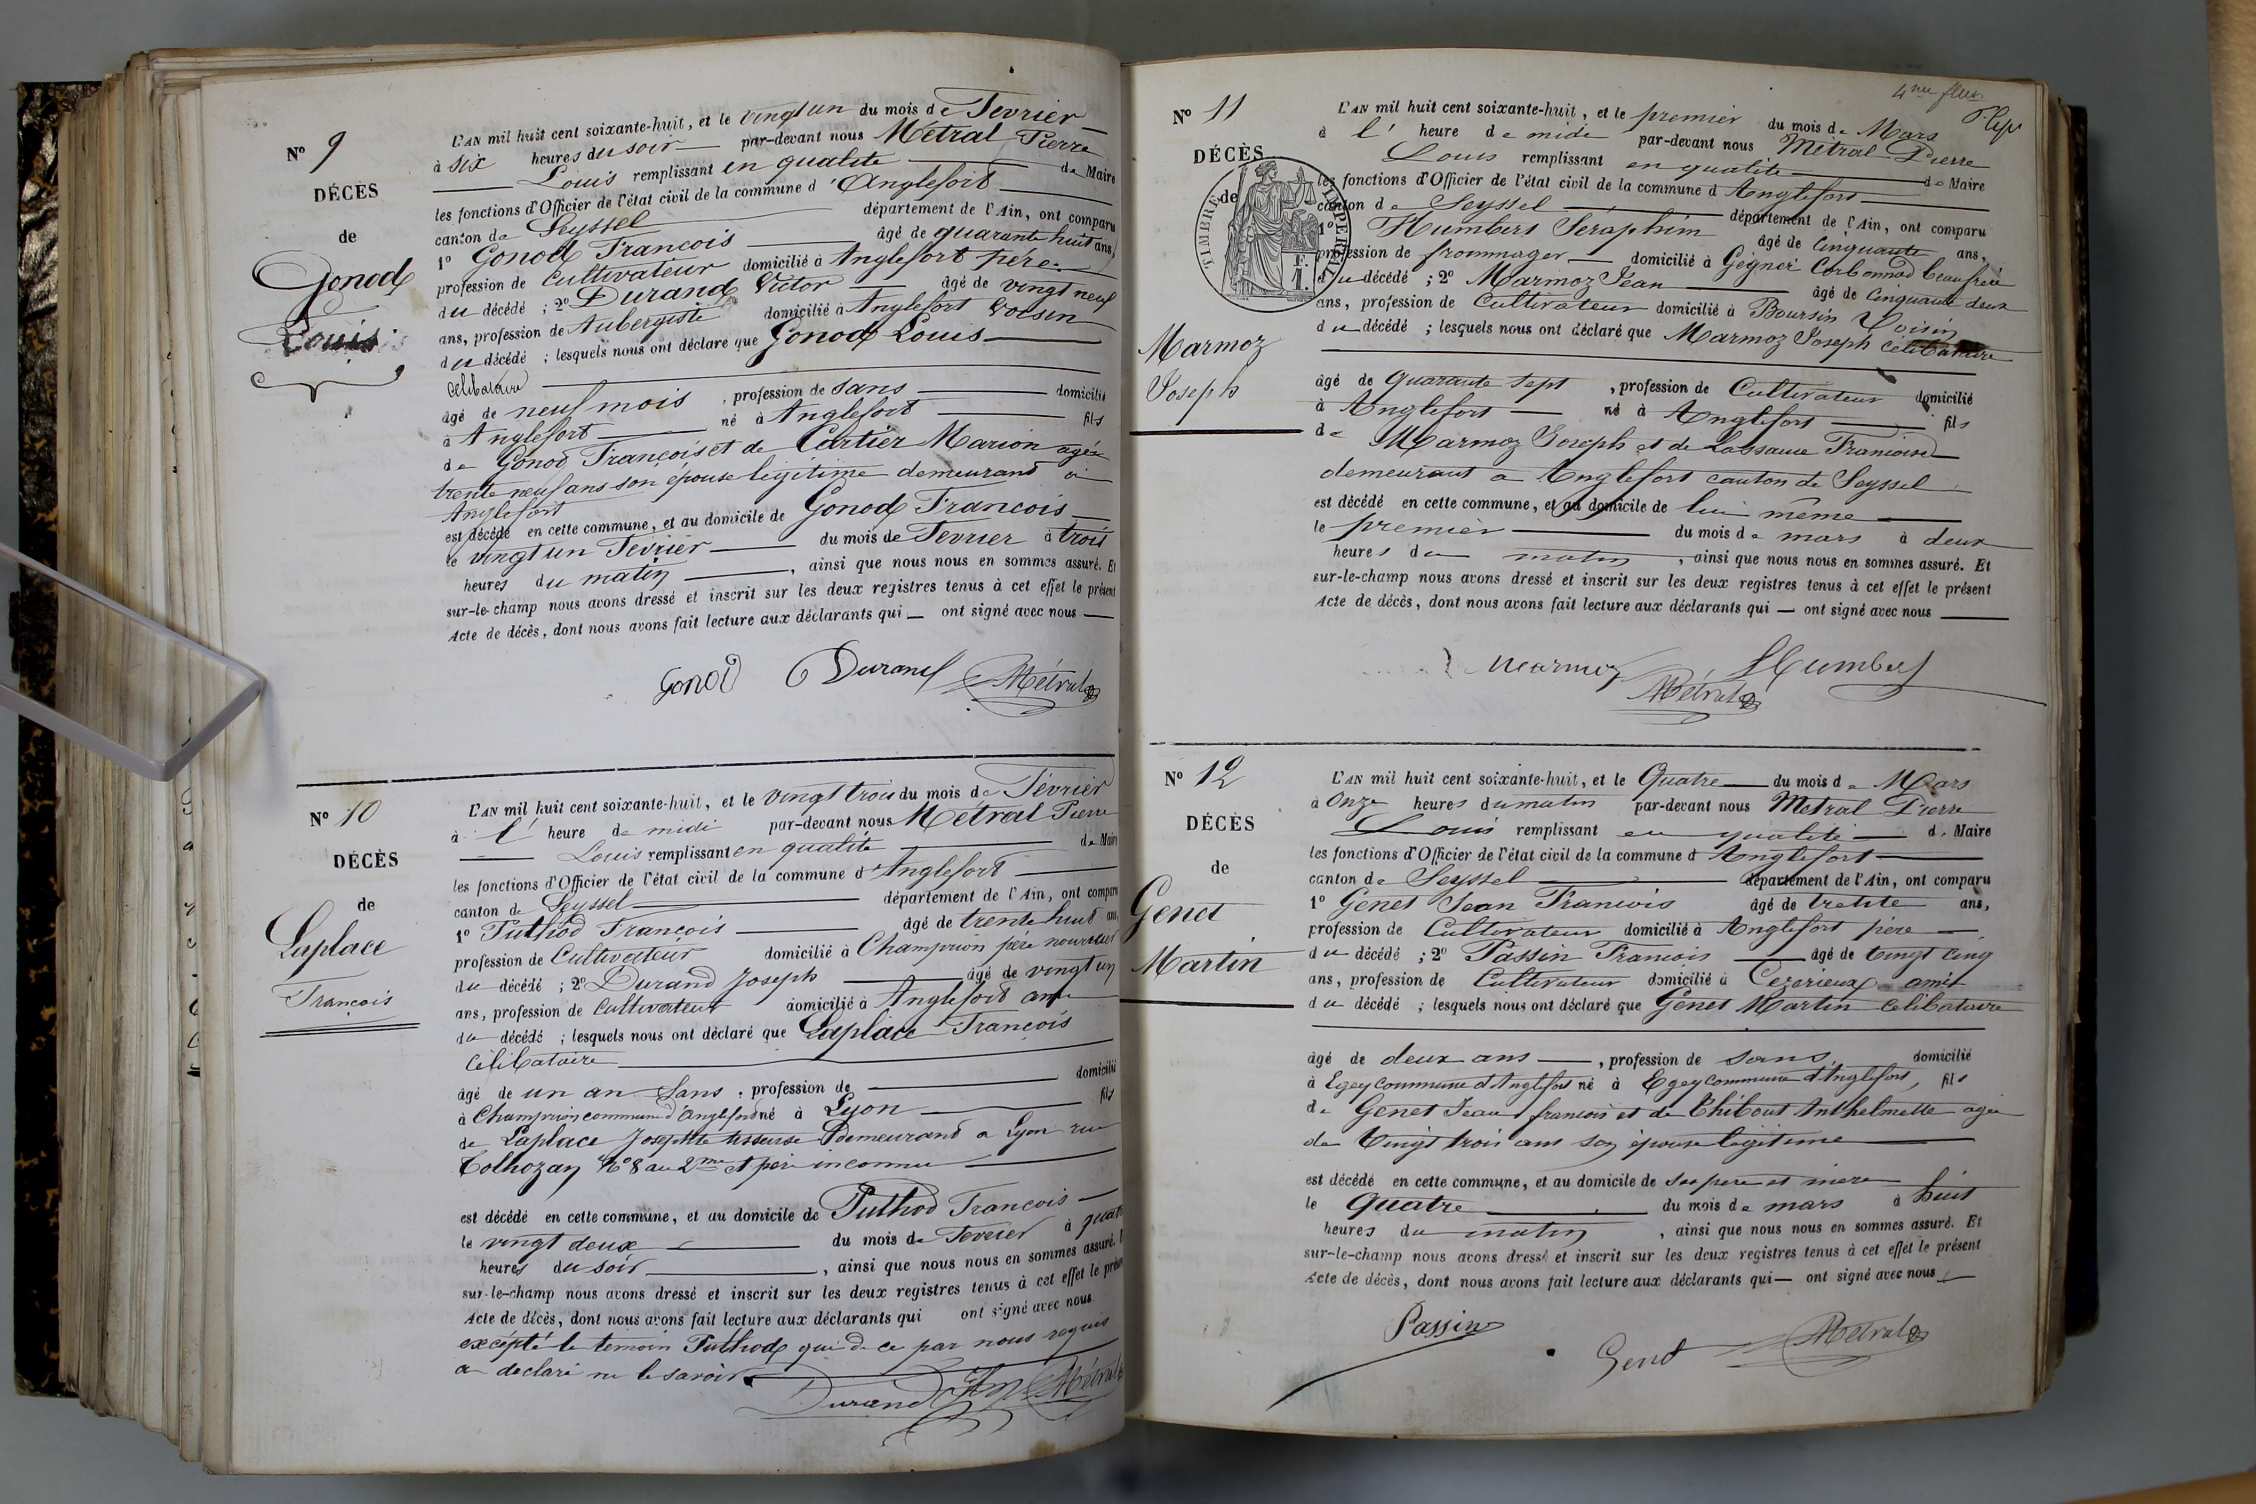 N° 9
DÉCÈS
de
Gonod
Louis
L'AN mil huit cent soixante-huit, et le vingt un du mois de Fevrier
à six heures du soir par-devant nous Métral Pierre
Louis remplissant en qualité de Maire
les fonctions d'Officier de l'état civil de la commune d'Anglefort
canton de Seyssel département de l'Ain, ont comparu
1° Gonod Francois âgé de quarante huit ans,
profession de Cultivateur domicilié à Anglefort père
du décédé ; 2° Durand Victor âgé de vingt neuf
ans, profession de Aubergiste domicilié à Anglefort Voisin
du décédé ; lesquels nous ont déclaré que Gonod Louis
Célibataire
âgé de neuf mois, profession de sans domicilié
à Anglefort né à Anglefort fils
de Gonod François et de Cartier Marion agée
trente neuf ans son épouse legitime demeurand à
Anglefort
est décédé en cette commune, et au domicile de Gonod Francois
le vingt un Fevrier du mois de Fevrier à trois
heures du matin, ainsi que nous nous en sommes assuré. Et
sur-le-champ nous avons dressé et inscrit sur les deux registres tenus à cet effet le présent
Acte de décès, dont nous avons fait lecture aux déclarants qui — ont signé avec nous —
Gonod Durand Métral
N° 10
DÉCÈS
de
Laplace
François
L'AN mil huit cent soixante-huit, et le vingt trois du mois de Février
à l' heure de midi par-devant nous Métral Pierre
Louis remplissant en qualité de Maire
les fonctions d'Officier de l'état civil de la commune d'Anglefort
canton de Seyssel département de l'Ain, ont comparu
1° Puthod François âgé de trente huit ans,
profession de Cultivateur domicilié à Champrion père nourricier
du décédé ; 2° Durand Joseph âgé de vingt un
ans, profession de Cultivateur domicilié à Anglefort ami
du décédé ; lesquels nous ont déclaré que Laplace François
Célibataire
âgé de un an Sans, profession de domicilié
à Champrion commune d'Anglefort né à Lyon fils
de Laplace Josephte tisseuse demeurand a Lyon rue
Tolhozan N° 8 au 2me et père inconnu
est décédé en cette commune, et au domicile de Puthod Francois
le vingt deux du mois de Fevrier à quatre
heures du soir, ainsi que nous nous en sommes assuré. Et
sur-le-champ nous avons dressé et inscrit sur les deux registres tenus à cet effet le présent
Acte de décès, dont nous avons fait lecture aux déclarants qui ont signé avec nous
excépté le temoin Puthod qui de ce par nous requis
a declaré ne le savoir
Durand Métral
4me
N° 11
DÉCÈS
de
TIMBRE IMPERIAL
F.
1.
Marmoz
Joseph
L'AN mil huit cent soixante-huit, et le premier du mois de Mars
à l' heure de midi par-devant nous Métral Pierre
Louis remplissant en qualité de Maire
les fonctions d'Officier de l'état civil de la commune d Anglefort
canton de Seyssel département de l'Ain, ont comparu
1° Humbert Séraphin âgé de Cinquante ans,
profession de frommager domicilié à Gégnei Corbonnod beaufrère
du décédé ; 2° Marmoz Jean âgé de Cinquante deux
ans, profession de Cultivateur domicilié à Boursin Voisin
du décédé ; lesquels nous ont déclaré que Marmoz Joseph célibataire
âgé de quarante sept, profession de Cultivateur domicilié
à Anglefort né à Anglefort fils
de Marmoz Joseph et de Lassaue Francoise
demeurant a Anglefort canton de Seyssel
est décédé en cette commune, et au domicile de lui même
le premièr du mois de mars à deux
heures du matin, ainsi que nous nous en sommes assuré. Et
sur-le-champ nous avons dressé et inscrit sur les deux registres tenus à cet effet le présent
Acte de décès, dont nous avons fait lecture aux déclarants qui — ont signé avec nous —
Marmoz SHumbert
Métral
N° 12
DÉCÈS
de
Genet
Martin
L'AN mil huit cent soixante-huit, et le Quatre du mois de Mars
à Onze heures du matin par-devant nous Metral Pierre
Louis remplissant en qualité de Maire
les fonctions d'Officier de l'état civil de la commune d Anglefort
canton de Seyssel département de l'Ain, ont comparu
1° Genet Jean Francois âgé de trente ans,
profession de Cultivateur domicilié à Anglefort père
du décédé ; 2° Passin Francois âgé de Vingt Cinq
ans, profession de Cultivateur domicilié à Cezerieux ami
du décédé ; lesquels nous ont déclaré que Genet Martin Celibataire
âgé de deux ans, profession de sans domicilié
à Egey commune d'Anglefort né à Egey commune d'Anglefort, fils
de Genet Jean francois et de Thibout Anthelmette agée
de Vingt trois ans son épouse legitime
est décédé en cette commune, et au domicile de ses pere et mere
le Quatre du mois de mars à huit
heures du matin, ainsi que nous nous en sommes assuré. Et
sur-le-champ nous avons dressé et inscrit sur les deux registres tenus à cet effet le présent
Acte de décès, dont nous avons fait lecture aux déclarants qui — ont signé avec nous
Passin
Genet Métral